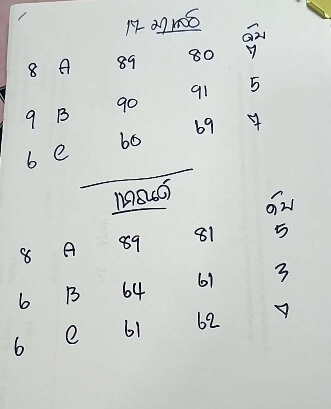 17 มาเลย์
ดับ
8 A 89 80 7
9 B 90 91 5
6 C 60 69 7
ดับ
8 A 89 81 5
6 B 64 61 3
6 C 61 62 7